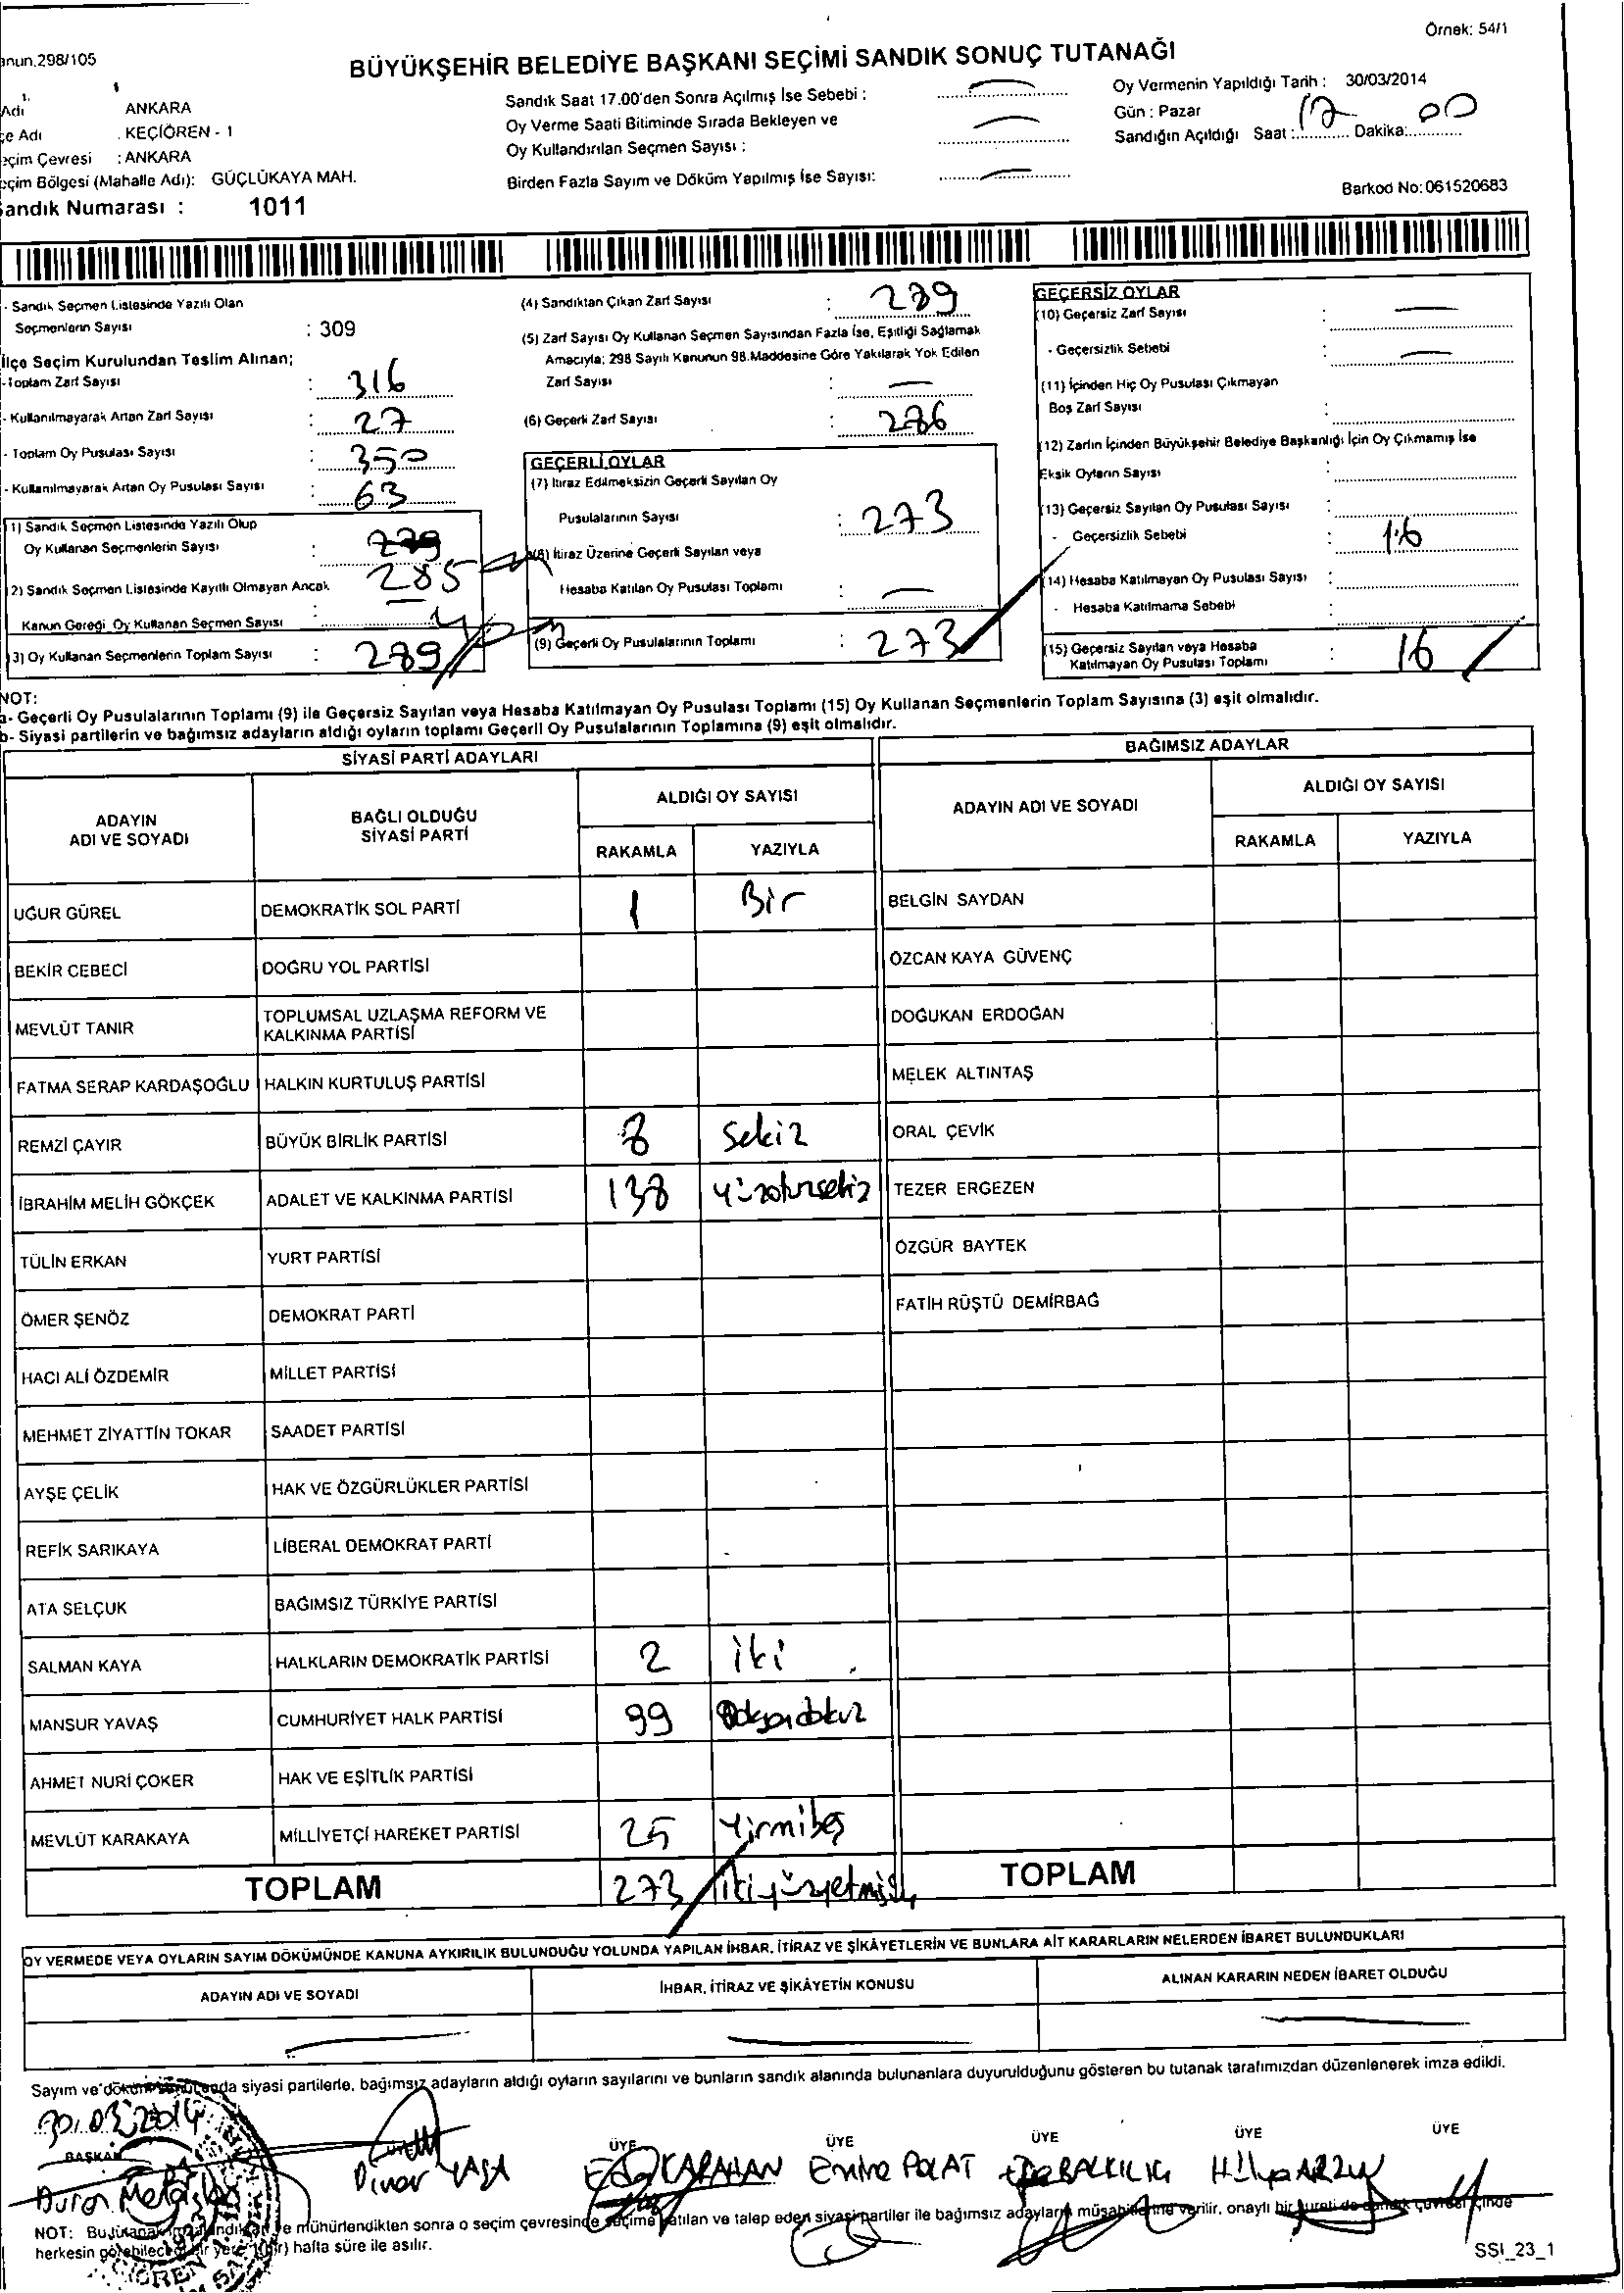 Örnek: 54/1
anun.298/105
BÜYÜKŞEHİR BELEDİYE BAŞKANI SEÇİMİ SANDIK SONUÇ TUTANAĞI
Adı ANKARA
çe Adı . KEÇİÖREN - 1
eçim Çevresi : ANKARA
eçim Bölgesi (Mahalle Adı): GÜÇLÜKAYA MAH.
Sandık Numarası : 1011
Sandık Saat 17.00'den Sonra Açılmış İse Sebebi :
Oy Verme Saati Bitiminde Sırada Bekleyen ve
Oy Kullandırılan Seçmen Sayısı :
Birden Fazla Sayım ve Döküm Yapılmış İse Sayısı:
Oy Vermenin Yapıldığı Tarih : 30/03/2014
Gün : Pazar
Sandığın Açıldığı Saat : 17 Dakika: 00
Barkod No: 061520683
- Sandık Seçmen Listesinde Yazılı Olan
Seçmenlerin Sayısı : 309
İlçe Seçim Kurulundan Teslim Alınan;
-Toplam Zarf Sayısı : 316
- Kullanılmayarak Artan Zarf Sayısı : 27
- Toplam Oy Pusulası Sayısı : 350
- Kullanılmayarak Artan Oy Pusulası Sayısı : 63
1) Sandık Seçmen Listesinde Yazılı Olup
Oy Kullanan Seçmenlerin Sayısı : 285
2) Sandık Seçmen Listesinde Kayıtlı Olmayan Ancak
Kanun Gereği Oy Kullanan Seçmen Sayısı : 4
3) Oy Kullanan Seçmenlerin Toplam Sayısı : 289
(4) Sandıktan Çıkan Zarf Sayısı : 289
(5) Zarf Sayısı Oy Kullanan Seçmen Sayısından Fazla İse, Eşitliği Sağlamak
Amacıyla; 298 Sayılı Kanunun 98.Maddesine Göre Yakılarak Yok Edilen
Zarf Sayısı :
(6) Geçerli Zarf Sayısı : 286
GEÇERLİ OYLAR
(7) İtiraz Edilmeksizin Geçerli Sayılan Oy
Pusulalarının Sayısı : 273
(8) İtiraz Üzerine Geçerli Sayılan veya
Hesaba Katılan Oy Pusulası Toplamı :
(9) Geçerli Oy Pusulalarının Toplamı : 273
GEÇERSİZ OYLAR
(10) Geçersiz Zarf Sayısı :
- Geçersizlik Sebebi :
(11) İçinden Hiç Oy Pusulası Çıkmayan
Boş Zarf Sayısı :
(12) Zarfın İçinden Büyükşehir Belediye Başkanlığı İçin Oy Çıkmamış İse
Eksik Oyların Sayısı :
(13) Geçersiz Sayılan Oy Pusulası Sayısı :
- Geçersizlik Sebebi : 16
(14) Hesaba Katılmayan Oy Pusulası Sayısı :
- Hesaba Katılmama Sebebi :
(15) Geçersiz Sayılan veya Hesaba
Katılmayan Oy Pusulası Toplamı : 16
NOT:
a- Geçerli Oy Pusulalarının Toplamı (9) ile Geçersiz Sayılan veya Hesaba Katılmayan Oy Pusulası Toplamı (15) Oy Kullanan Seçmenlerin Toplam Sayısına (3) eşit olmalıdır.
b- Siyasi partilerin ve bağımsız adayların aldığı oyların toplamı Geçerli Oy Pusulalarının Toplamına (9) eşit olmalıdır.
SİYASİ PARTİ ADAYLARI BAĞIMSIZ ADAYLAR
ADAYIN ADI VE SOYADI BAĞLI OLDUĞU SİYASİ PARTİ ALDIĞI OY SAYISI ADAYIN ADI VE SOYADI ALDIĞI OY SAYISI
RAKAMLA YAZIYLA RAKAMLA YAZIYLA
UĞUR GÜREL DEMOKRATİK SOL PARTİ 1 Bir BELGİN SAYDAN
BEKİR CEBECİ DOĞRU YOL PARTİSİ ÖZCAN KAYA GÜVENÇ
MEVLÜT TANIR TOPLUMSAL UZLAŞMA REFORM VE KALKINMA PARTİSİ DOĞUKAN ERDOĞAN
FATMA SERAP KARDAŞOĞLU HALKIN KURTULUŞ PARTİSİ MELEK ALTINTAŞ
REMZİ ÇAYIR BÜYÜK BİRLİK PARTİSİ 8 Sekiz ORAL ÇEVİK
İBRAHİM MELİH GÖKÇEK ADALET VE KALKINMA PARTİSİ 138 yüzotuzsekiz TEZER ERGEZEN
TÜLİN ERKAN YURT PARTİSİ ÖZGÜR BAYTEK
ÖMER ŞENÖZ DEMOKRAT PARTİ FATİH RÜŞTÜ DEMİRBAĞ
HACI ALİ ÖZDEMİR MİLLET PARTİSİ
MEHMET ZİYATTİN TOKAR SAADET PARTİSİ
AYŞE ÇELİK HAK VE ÖZGÜRLÜKLER PARTİSİ
REFİK SARIKAYA LİBERAL DEMOKRAT PARTİ
ATA SELÇUK BAĞIMSIZ TÜRKİYE PARTİSİ
SALMAN KAYA HALKLARIN DEMOKRATİK PARTİSİ 2 iki
MANSUR YAVAŞ CUMHURİYET HALK PARTİSİ 99 Doksandokuz
AHMET NURİ ÇOKER HAK VE EŞİTLİK PARTİSİ
MEVLÜT KARAKAYA MİLLİYETÇİ HAREKET PARTİSİ 25 Yirmibeş
TOPLAM 273 TOPLAM
OY VERMEDE VEYA OYLARIN SAYIM DÖKÜMÜNDE KANUNA AYKIRILIK BULUNDUĞU YOLUNDA YAPILAN İHBAR, İTİRAZ VE ŞİKÂYETLERİN VE BUNLARA AİT KARARLARIN NELERDEN İBARET BULUNDUKLARI
ADAYIN ADI VE SOYADI İHBAR, İTİRAZ VE ŞİKÂYETİN KONUSU ALINAN KARARIN NEDEN İBARET OLDUĞU
Sayım ve döküm siyasi partilerle, bağımsız adayların aldığı oyların sayılarını ve bunların sandık alanında bulunanlara duyurulduğunu gösteren bu tutanak tarafımızdan düzenlenerek imza edildi.
30.03.2014
BAŞKAN ÜYE ÜYE ÜYE ÜYE ÜYE
Pınar YAŞA Eda KARAHAN Emine POLAT BALKILIÇ Hülya ARZU
NOT: Bu tutanak ve mühürlendikten sonra o seçim çevresinde seçime katılan ve talep eden siyasi partiler ile bağımsız adayların müşahitlerine verilir, onaylı bir sureti de sandık çevresi içinde
herkesin görebileceği bir yere 1(bir) hafta süre ile asılır.
SSI_23_1